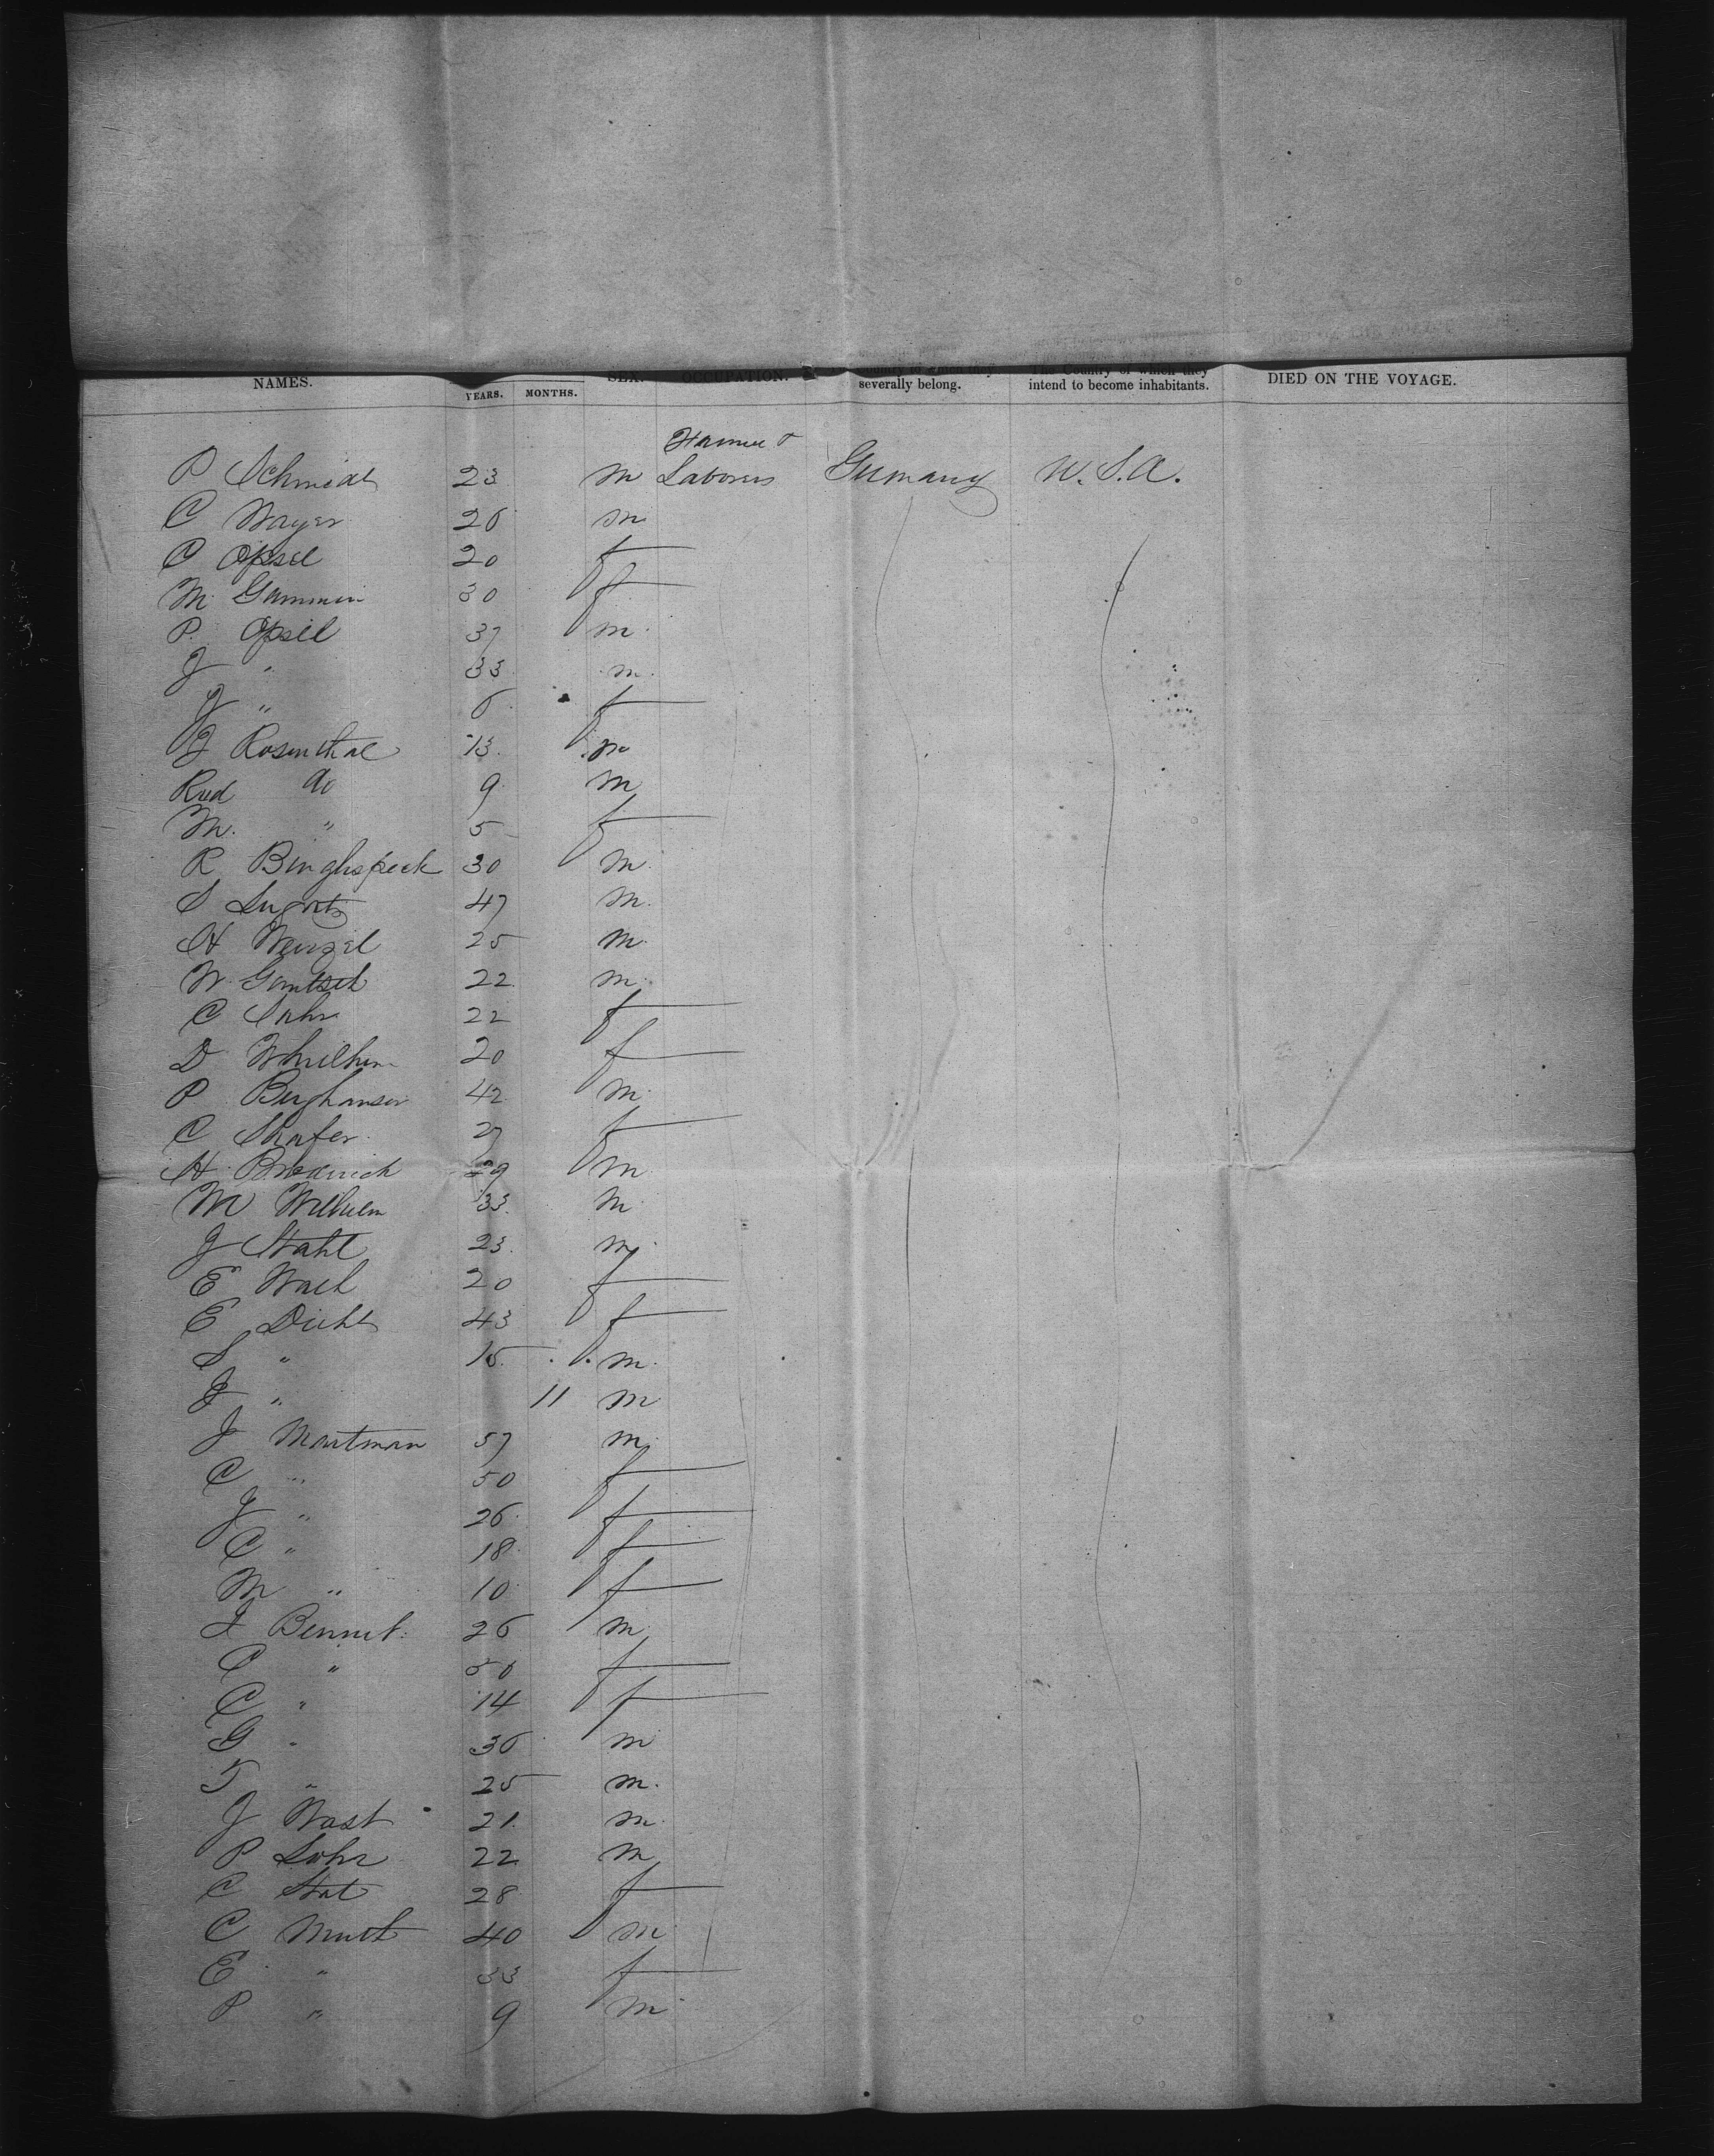 NAMES. YEARS. MONTHS. SEX. OCCUPATION. severally belong. The Country of which they intend to become inhabitants. DIED ON THE VOYAGE.
Farmer &
P Schmidt 23 m Laborers Germany U.S.A.
C Mayer 26 m
C Opsel 20 f
M. 30 f
P. Opsel 37 m
J " 33 m
J " 6 f
J Rosenthal 13 m
Rud do 9 m
M. " 5 f
R Binghspeck 30 m
S 47 m
H Wenzel 25 m
W. 22 m
C 22 f
D 20 f
P Berghauser 42 m
C Shafer 27 f
H. 29 m
M Wilhelm 33 m
J Stahl 23 m
E 20 f
E Diehl 43 f
S " 15 m
J " 11 m
J Mautman 57 m
C " 50 f
J " 26 f
C " 18 f
M " 10 f
J Bennet 26 m
C " 50 f
C " 14 f
G " 36 m
T " 25 m
J Wast 21 m
P Lohr 22 m
C 28 f
C Muth 40 m
E " 33 f
P " 9 m